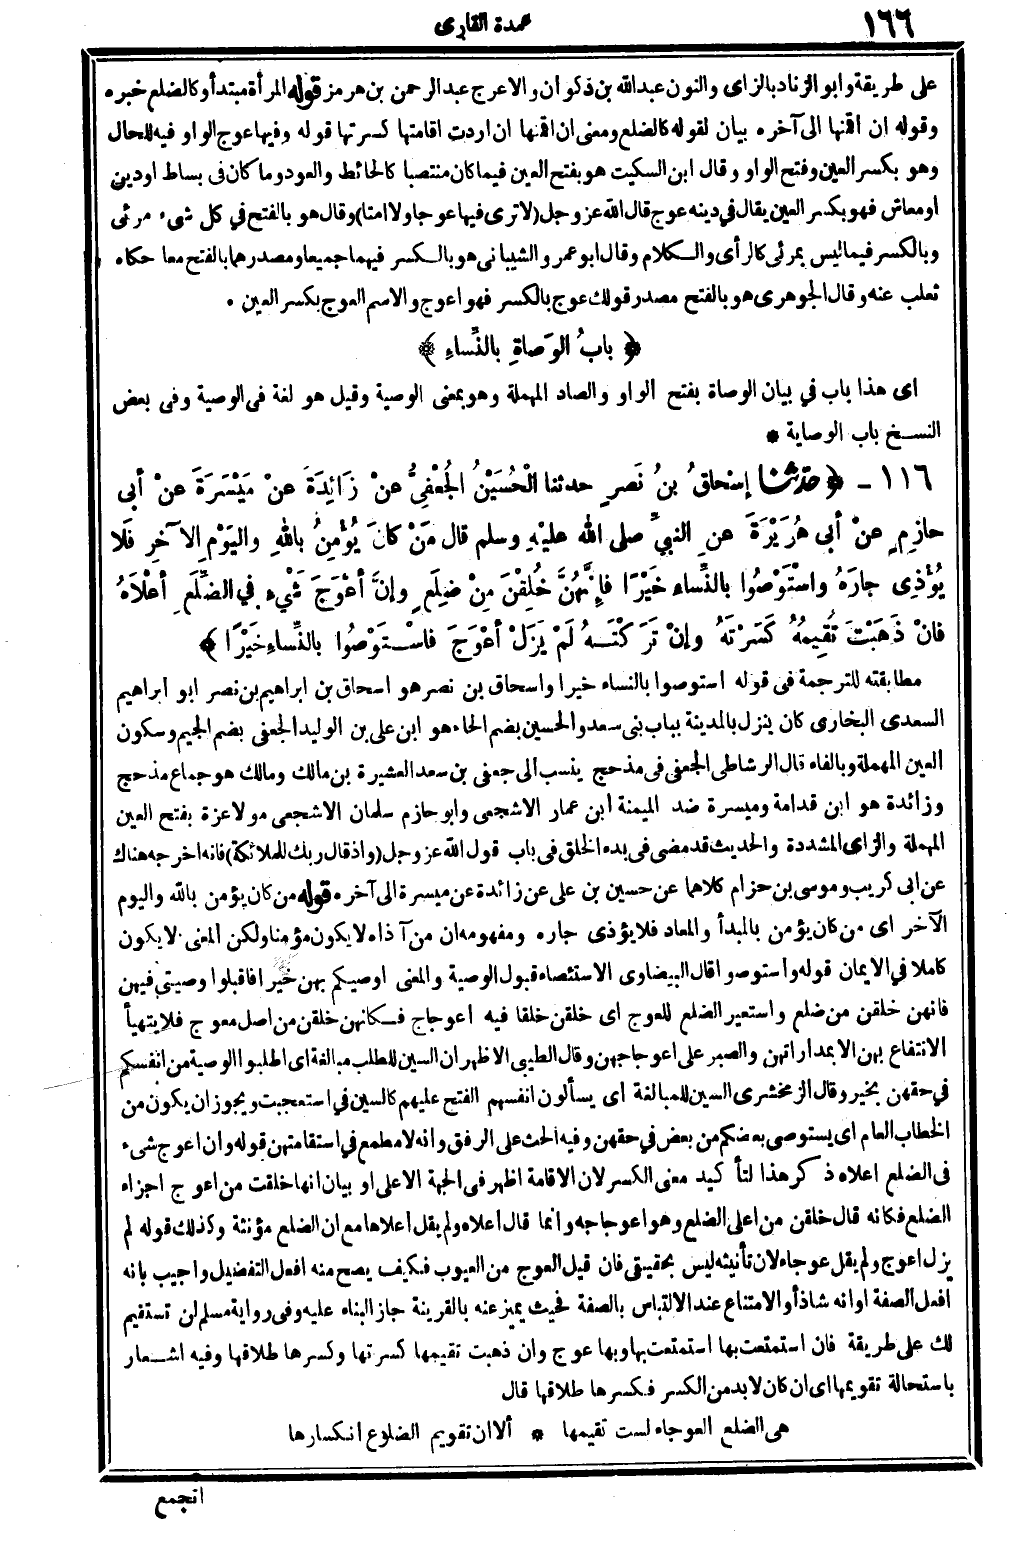 ١٦٦
عمدة القارى
على طريقة وابو الزناد بالزاى والنون عبدالله بن ذكوان والاعرج عبدالرحمن بن هرمز قوله المرأة مبتدأ وكالضلع خبره
وقوله ان اقمتها الى آخره بيان لقوله كالضلع ومعنى ان اقمتها ان اردت اقامتها كسرتها قوله وفيها عوج الواو فيه للحال
وهو بكسر العين وفتح الواو وقال ابن السكيت هو بفتح العين فيما كان منتصبا كالحائط والعود وما كان فى بساط او دين
او معاش فهو بكسر العين يقال في دينه عوج قال الله عز وجل (لا ترى فيها عوجا ولا امتا) وقال هو بالفتح في كل شىء مرئى
وبالكسر فيما ليس بمرئى كالرأى والكلام وقال ابو عمرو الشيبانى هو بالكسر فيهما جميعا ومصدرهما بالفتح معا حكاه
ثعلب عنه وقال الجوهرى هو بالفتح مصدر قولك عوج بالكسر فهو اعوج والاسم العوج بكسر العين .
﴿ بابُ الوَصاةِ بالنِّساءِ ﴾
اى هذا باب في بيان الوصاة بفتح الواو والصاد المهملة وهو بمعنى الوصية وقيل هو لغة فى الوصية وفى بعض
النسخ باب الوصاية *
١١٦ - ﴿ حدثنا إسْحاقُ بنُ نَصرٍ حدثنا الْحُسَيْنُ الجُعْفِىُّ عنْ زَائِدَةَ عنْ مَيْسَرَةَ عنْ أبى
حازِمٍ عنْ أبى هُرَيْرَةَ عنِ النبىِّ صلى الله عليْهِ وسلم قال مَنْ كانَ يُؤْمِنُ باللهِ واليَوْمِ الآخرِ فَلا
يُؤْذِى جارَهُ واسْتَوْصُوا بالنِّساءِ خَيْرًا فإنَّهُنَّ خُلِقْنَ مِنْ ضِلَعٍ وإنَّ أعْوَجَ شَىْءٍ في الضِّلَعِ أعْلَاهُ
فانْ ذَهَبْتَ تُقِيمُهُ كَسَرْتَهُ وإنْ تَرَكْتَهُ لَمْ يَزَلْ أعْوَجَ فاسْتَوْصُوا بالنِّساءِ خَيْرًا ﴾
مطابقته للترجمة فى قوله استوصوا بالنساء خيرا واسحاق بن نصر هو اسحاق بن ابراهيم بن نصر ابو ابراهيم
السعدى البخارى كان ينزل بالمدينة بباب بنى سعد والحسين بضم الحاء هو ابن على بن الوليد الجعفى بضم الجيم وسكون
العين المهملة وبالفاء قال الرشاطى الجعفى فى مذحج ينسب الى جعفى بن سعد العشيرة بن مالك ومالك هو جماع مذحج
وزائدة هو ابن قدامة وميسرة ضد الميمنة ابن عمار الاشجعى وابو حازم سلمان الاشجعى مولا عزة بفتح العين
المهملة والزاى المشددة والحديث قد مضى فى بدء الخلق فى باب قول الله عز وجل (واذ قال ربك للملائكة) فانه اخرجه هناك
عن ابى كريب وموسى بن حزام كلاهما عن حسين بن على عن زائدة عن ميسرة الى آخره قوله من كان يؤمن بالله واليوم
الآخر اى من كان يؤمن بالمبدأ والمعاد فلا يؤذى جاره ومفهومه ان من آذاه لا يكون مؤمنا ولكن المعنى لا يكون
كاملا في الايمان قوله واستوصوا قال البيضاوى الاستئصاء قبول الوصية والمعنى اوصيكم بهن خيرا فاقبلوا وصيتى فيهن
فانهن خلقن من ضلع واستعير الضلع للعوج اى خلقن خلقا فيه اعوجاج فكانهن خلقن من اصل معوج فلا يتهيأ
الانتفاع بهن الا بمداراتهن والصبر على اعوجاجهن وقال الطيبى الاظهر ان السين للطلب مبالغة اى اطلبوا الوصية من انفسكم
في حقهن بخير وقال الزمخشرى السين للمبالغة اى يسألون انفسهم الفتح عليهم كالسين في استعجبت ويجوز ان يكون من
الخطاب العام اى يستوصى بعضكم من بعض في حقهن وفيه الحث على الرفق وانه لا مطمع في استقامتهن قوله وان اعوج شىء
فى الضلع اعلاه ذكر هذا لتأكيد معنى الكسر لان الاقامة اظهر فى الجهة الاعلى او بيان انها خلقت من اعوج اجزاء
الضلع فكانه قال خلقن من اعلى الضلع وهو اعوجاجه وانما قال اعلاه ولم يقل اعلاها مع ان الضلع مؤنثة وكذلك قوله لم
يزل اعوج ولم يقل عوجاء لان تأنيثه ليس بحقيقى فان قيل العوج من العيوب فكيف يصح منه افعل التفضيل واجيب بانه
افعل الصفة او انه شاذ او الامتناع عند الالتباس بالصفة فحيث يميز عنه بالقرينة جاز البناء عليه وفى رواية مسلم لن تستقيم
لك على طريقة فان استمتعت بها استمتعت بها وبها عوج وان ذهبت تقيمها كسرتها وكسرها طلاقها وفيه اشعار
باستحالة تقويمها اى ان كان لا بد من الكسر فكسرها طلاقها قال
هى الضلع العوجاء لست تقيمها * ألا ان تقويم الضلوع انكسارها
اتجمع